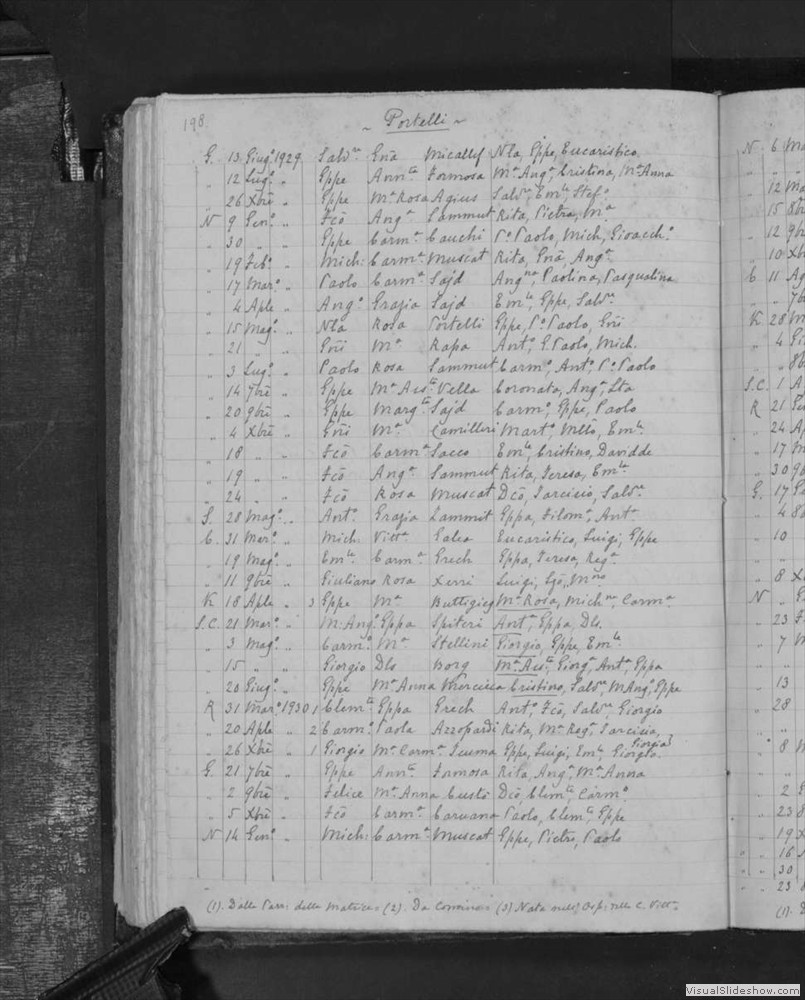 198
~ Portelli ~
G. 13 Giug.º 1929 Salv.re Gnã Micallef Nla, Gppe, Eucaristico,
„ 12 Lug.º „ Gppe Ann.ta Formosa M.a Ang.a, Cristina, M.a Anna
„ 26 Xbre „ Gppe M.a Rosa Agius Salv.re, Em.le, Stef.º
N 9 Gen.º „ Fcõ Ang.a Sammut Rita, Pietra, M.a
„ 30 „ „ Gppe Carm.a Cauchi P.º Paolo, Mich, Gioacch.º
„ 19 Feb.º „ Mich: Carm.a Muscat Rita, Gnã, Ang.a
„ 17 Mar.º „ Paolo Carm.a Sajd Ang.na, Paolina, Pasqualina
„ 4 Aple „ Ang.º Grazia Sajd Em.le, Gppe, Salv.re
„ 15 Mag.º „ Nla Rosa Portelli Gppe, P.º Paolo, Gñi
„ 21 „ „ Gñi M.a Rapa Ant.º, P. Paolo, Mich.
„ 3 Lug.º „ Paolo Rosa Sammut Carm.º, Ant.º, P.º Paolo
„ 14 7bre „ Gppe M.a Ass.ta Vella Coronata, Ang.a, Sta
„ 20 9bre „ Gppe Marg.ta Sajd Carm.º, Gppe, Paolo
„ 4 Xbre „ Gñi M.a Camilleri Mart.º, Mllo, Em.le
„ 18 „ „ Fcõ Carm.a Sacco Em.le, Cristino, Davidde
„ 19 „ „ Fcõ Ang.a Sammut Rita, Teresa, Em.la
„ 24 „ „ Fcõ Rosa Muscat Dcõ, Tarcisio, Salv.re
S. 28 Mag.º „ Ant.º Grazia Zammit Gppa, Filom.a, Ant.a
C. 31 Mar.º „ Mich. Vitt.a Galea Eucaristico, Luigi, Gppe
„ 19 Mag.º „ Em.le Carm.a Grech Gppa, Teresa, Reg.a
„ 11 9bre „ Giuliano Rosa Xerri Luigi, Igõ, M.no
K 18 Aple „ 3 Gppe M.a Buttigieg M.a Rosa, Mich.na, Carm.a
S.C. 21 Mar.º „ M. Ang. Gppa Spiteri Ant.a, Gppa, Dls.
„ 3 Mag.º „ Carm.º M.a Stellini Giorgio, Gppe, Em.le
„ 15 „ „ Giorgio Dls Borg M.a Ass.ta, Giorg.a, Ant.a, Gppa
„ 20 Giug.º „ Gppe M.a Anna Mercieca Cristino, Salv.re, M Ang.º, Gppe
R 31 Mar.º 1930 1 Clem.te Gppa Grech Ant.º, Fcõ, Salv.re, Giorgio
„ 20 Aple „ 2 Carm.º Paola Azzopardi Rita, M.a Reg.a, Tarcisia,
„ 26 Xbre „ 1 Giorgio M.a Carm.a Teuma Gppe, Luigi, Em.le, Giorgio
G. 21 7bre „ Gppe Ann.ta Formosa Rita, Ang.a, M.a Anna
„ 2 9bre „ Felice M.a Anna Custò Dcõ, Clem.te, Carm.º
„ 5 Xbre „ Fcõ Carm.a Caruana Paolo, Clem.te, Gppe
N 14 Gen.º „ Mich: Carm.a Muscat Gppe, Pietro, Paolo
(1). Dalla Parr: della Matrice. (2). Da (3) Nata
N 6
12
15
12
10
C 11
K 28
4
S.C. 1
R 21
24
17
30
G. 17
4
10
8
N
23
7
13
28
8
2
23
19
16
30
23
VisualSlideshow.com